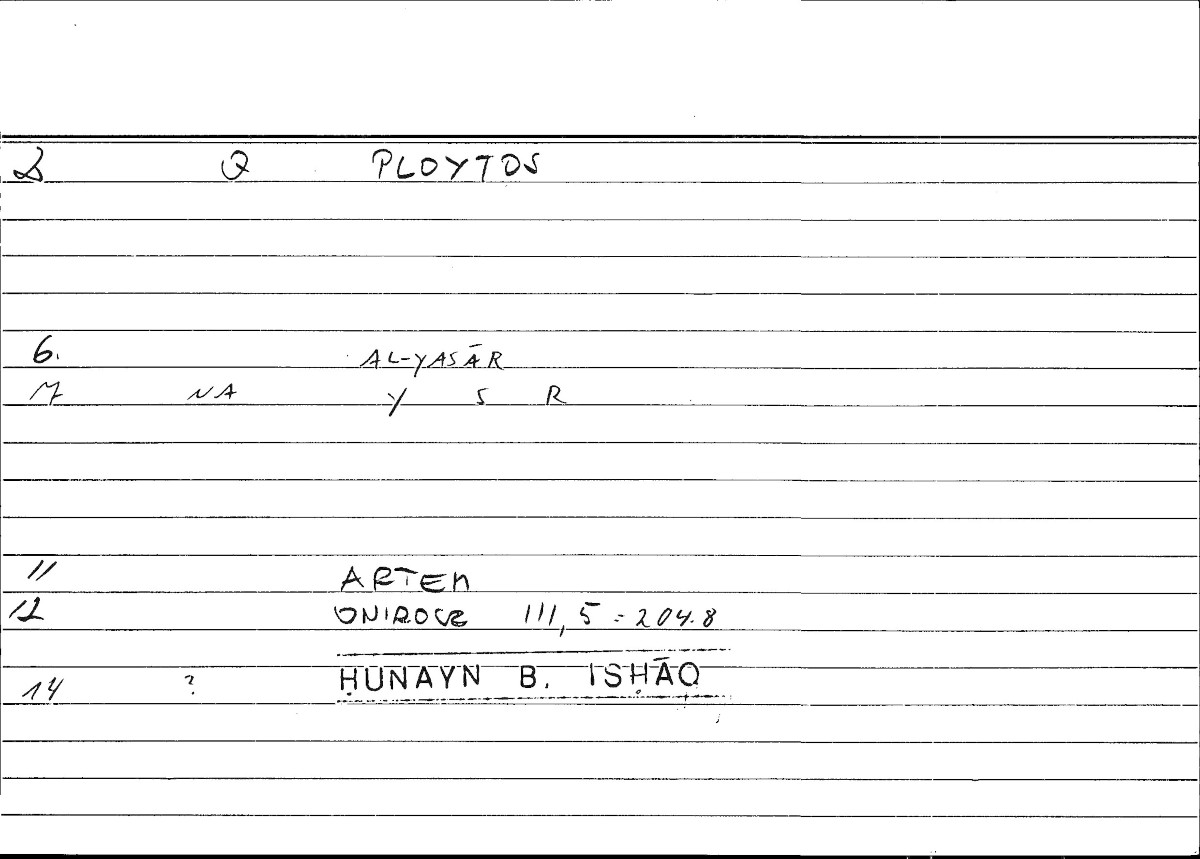 2 Q PLOYTOS
6. AL-YASĀR
7 NA Y S R
11 ARTEM
12 ONIROCR III, 5 = 204.8
14 ? ḤUNAYN B. ISḤĀQ